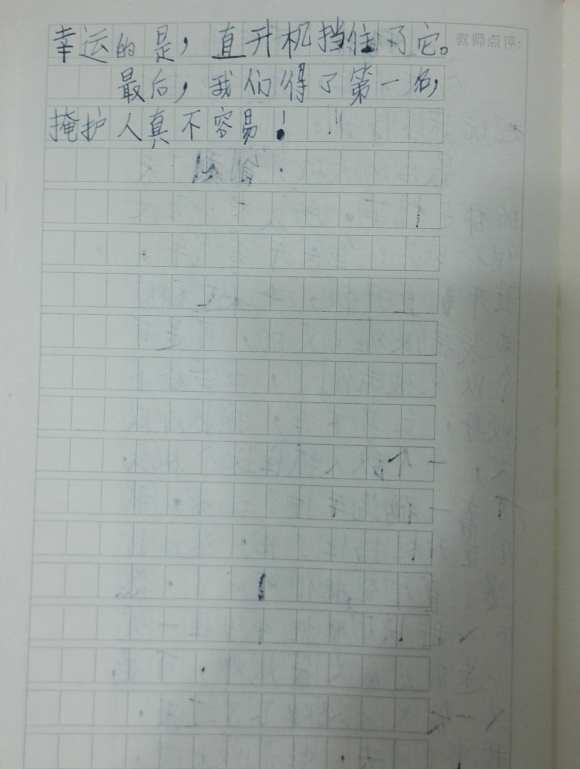 幸运的是，直升机挡住了它。
教师点评：
最后，我们得了第一名，
掩护人真不容易！